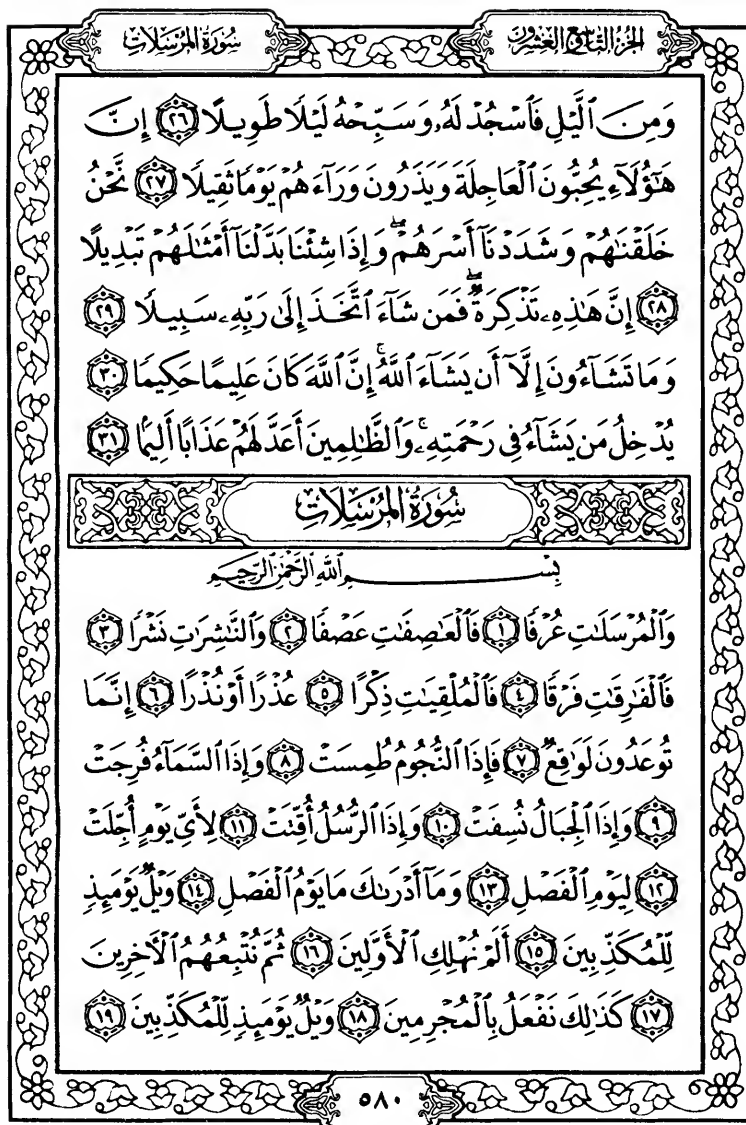 الجزء التاسع والعشرون
سورة المرسلات
وَمِنَ ٱلَّيْلِ فَٱسْجُدْ لَهُۥ وَسَبِّحْهُ لَيْلًا طَوِيلًا ٢٦ إِنَّ
هَٰٓؤُلَآءِ يُحِبُّونَ ٱلْعَاجِلَةَ وَيَذَرُونَ وَرَآءَهُمْ يَوْمًا ثَقِيلًا ٢٧ نَّحْنُ
خَلَقْنَٰهُمْ وَشَدَدْنَآ أَسْرَهُمْ ۖ وَإِذَا شِئْنَا بَدَّلْنَآ أَمْثَٰلَهُمْ تَبْدِيلًا
٢٨ إِنَّ هَٰذِهِۦ تَذْكِرَةٌ ۖ فَمَن شَآءَ ٱتَّخَذَ إِلَىٰ رَبِّهِۦ سَبِيلًا ٢٩
وَمَا تَشَآءُونَ إِلَّآ أَن يَشَآءَ ٱللَّهُ ۚ إِنَّ ٱللَّهَ كَانَ عَلِيمًا حَكِيمًا ٣٠
يُدْخِلُ مَن يَشَآءُ فِى رَحْمَتِهِۦ ۚ وَٱلظَّٰلِمِينَ أَعَدَّ لَهُمْ عَذَابًا أَلِيمًۢا ٣١
سُورَةُ المُرْسَلَاتِ
بِسْمِ اللَّهِ الرَّحْمَٰنِ الرَّحِيمِ
وَٱلْمُرْسَلَٰتِ عُرْفًا ١ فَٱلْعَٰصِفَٰتِ عَصْفًا ٢ وَٱلنَّٰشِرَٰتِ نَشْرًا ٣
فَٱلْفَٰرِقَٰتِ فَرْقًا ٤ فَٱلْمُلْقِيَٰتِ ذِكْرًا ٥ عُذْرًا أَوْ نُذْرًا ٦ إِنَّمَا
تُوعَدُونَ لَوَٰقِعٌ ٧ فَإِذَا ٱلنُّجُومُ طُمِسَتْ ٨ وَإِذَا ٱلسَّمَآءُ فُرِجَتْ
٩ وَإِذَا ٱلْجِبَالُ نُسِفَتْ ١٠ وَإِذَا ٱلرُّسُلُ أُقِّتَتْ ١١ لِأَىِّ يَوْمٍ أُجِّلَتْ
١٢ لِيَوْمِ ٱلْفَصْلِ ١٣ وَمَآ أَدْرَىٰكَ مَا يَوْمُ ٱلْفَصْلِ ١٤ وَيْلٌ يَوْمَئِذٍ
لِّلْمُكَذِّبِينَ ١٥ أَلَمْ نُهْلِكِ ٱلْأَوَّلِينَ ١٦ ثُمَّ نُتْبِعُهُمُ ٱلْءَاخِرِينَ
١٧ كَذَٰلِكَ نَفْعَلُ بِٱلْمُجْرِمِينَ ١٨ وَيْلٌ يَوْمَئِذٍ لِّلْمُكَذِّبِينَ ١٩
٥٨٠